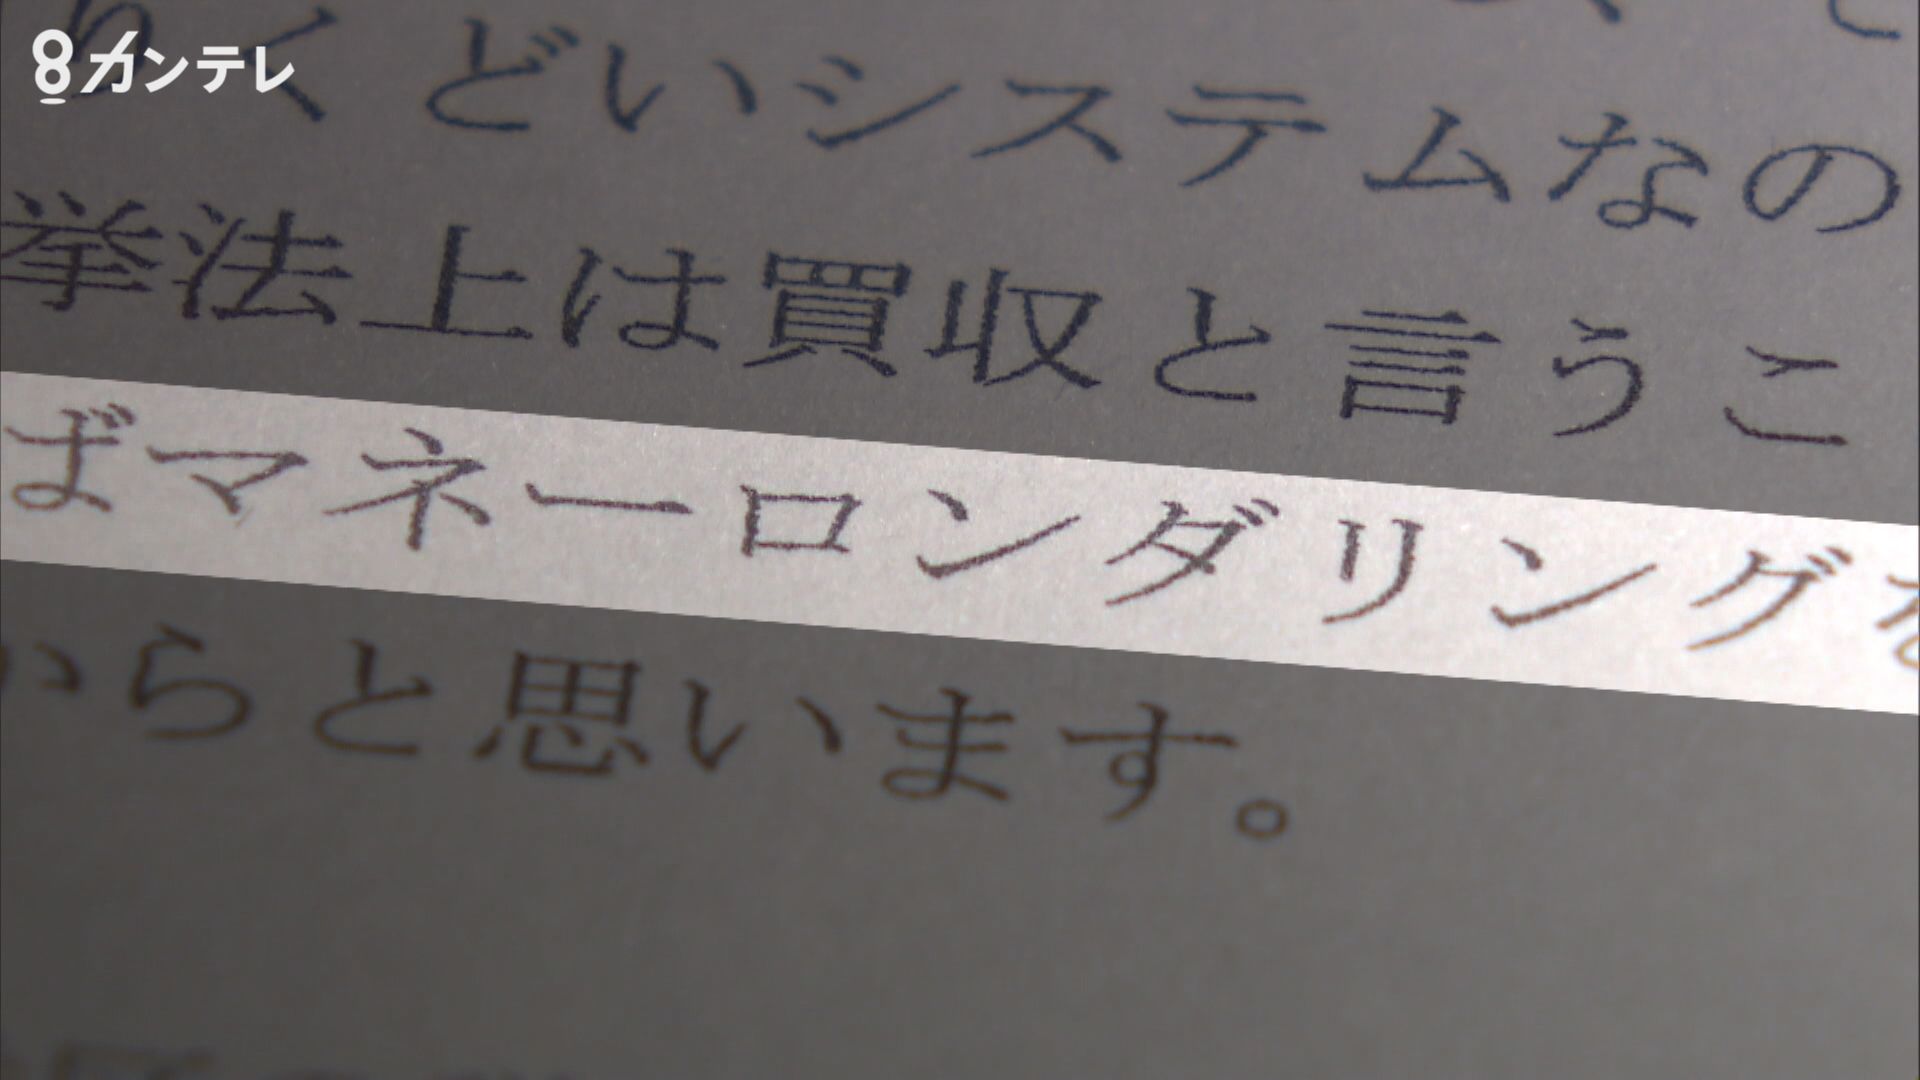 8カンテレ
りくどいシステムなの
挙法上は買収と言うこ
ばマネーロンダリングを
からと思います。